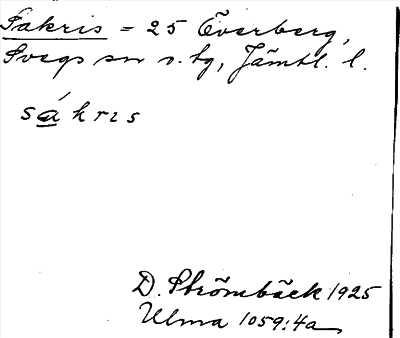 Sakris = 25 Överberg,
Svegs sn o. tg, Jämtl. l.
sákrıs
D. Strömbäck 1925
Ulma 1059:4a